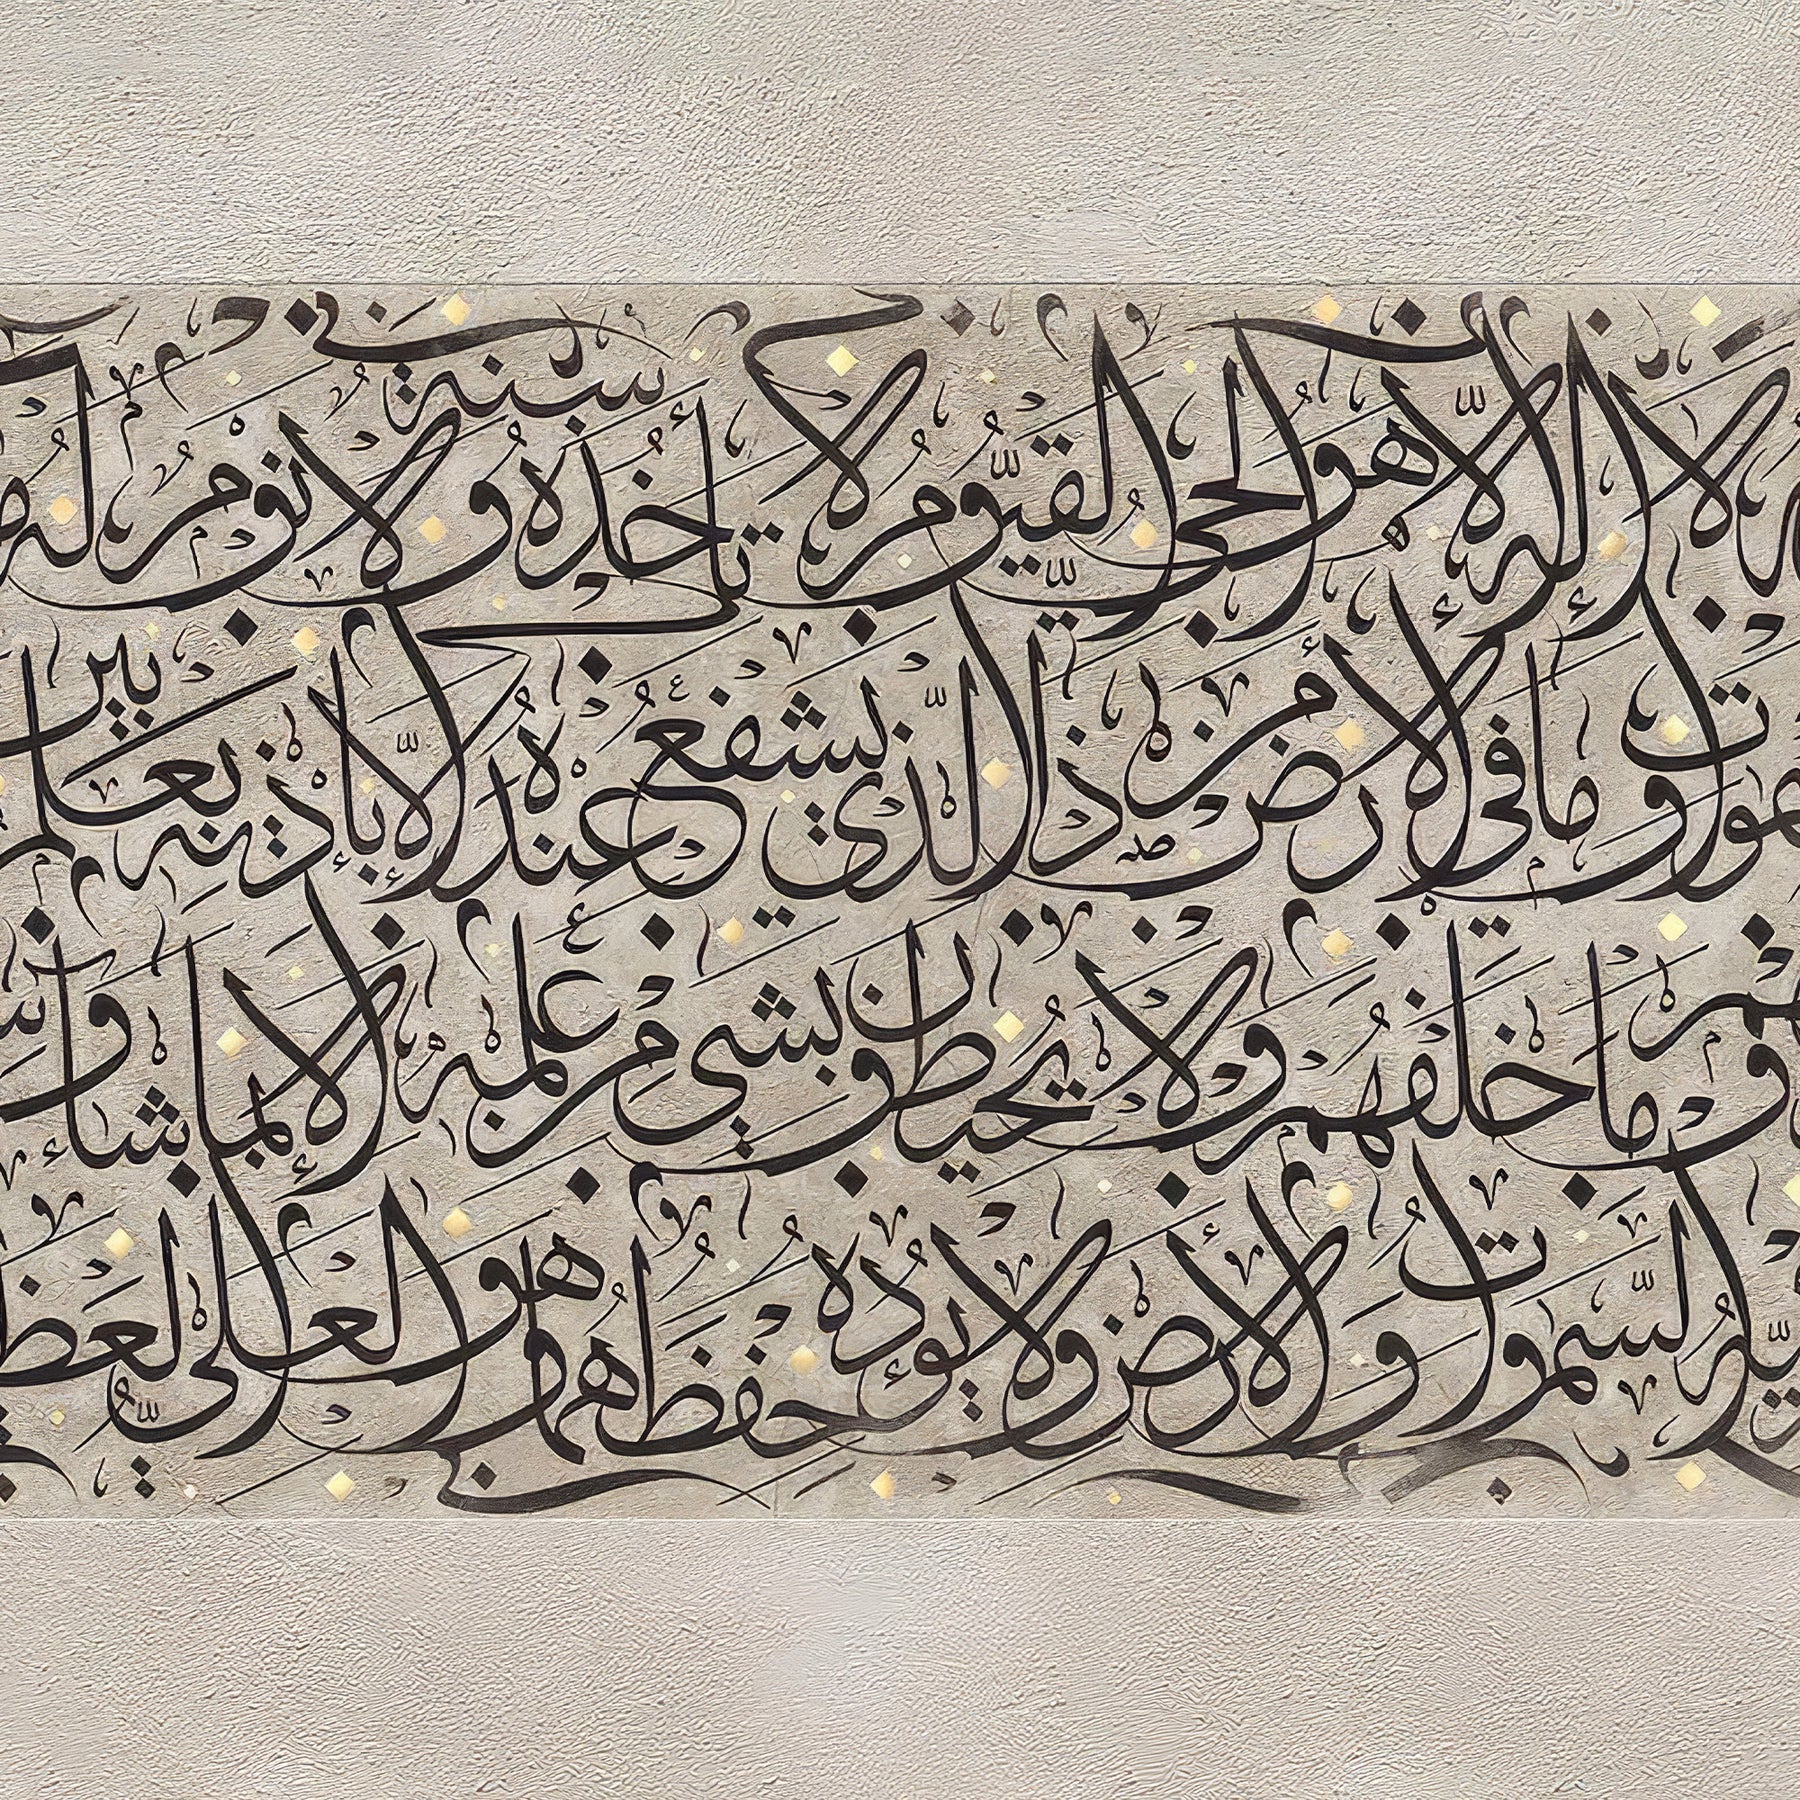 لا إله إلا هو الحي القيوم لا تأخذه سنة ولا نوم له
وات وما في الأرض من ذا الذي يشفع عنده إلا بإذنه يعلم بين
وما خلفهم ولا يحيطون بشيء من علمه إلا بما شاء وس
يه السموات والأرض ولا يؤده حفظهما وهو العلي العظ